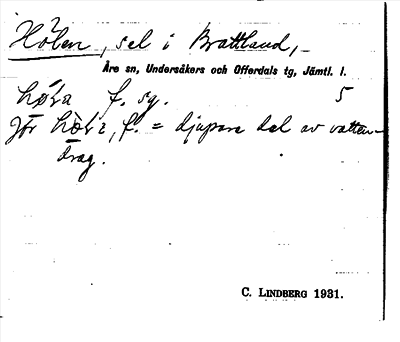 Hölen, sel i Brattland,
Åre sn, Undersåkers och Offerdals tg, Jämtl. l.
f. sg. 5
Jfr f. = djupare del av vatten-
drag.
C. LINDBERG 1931.